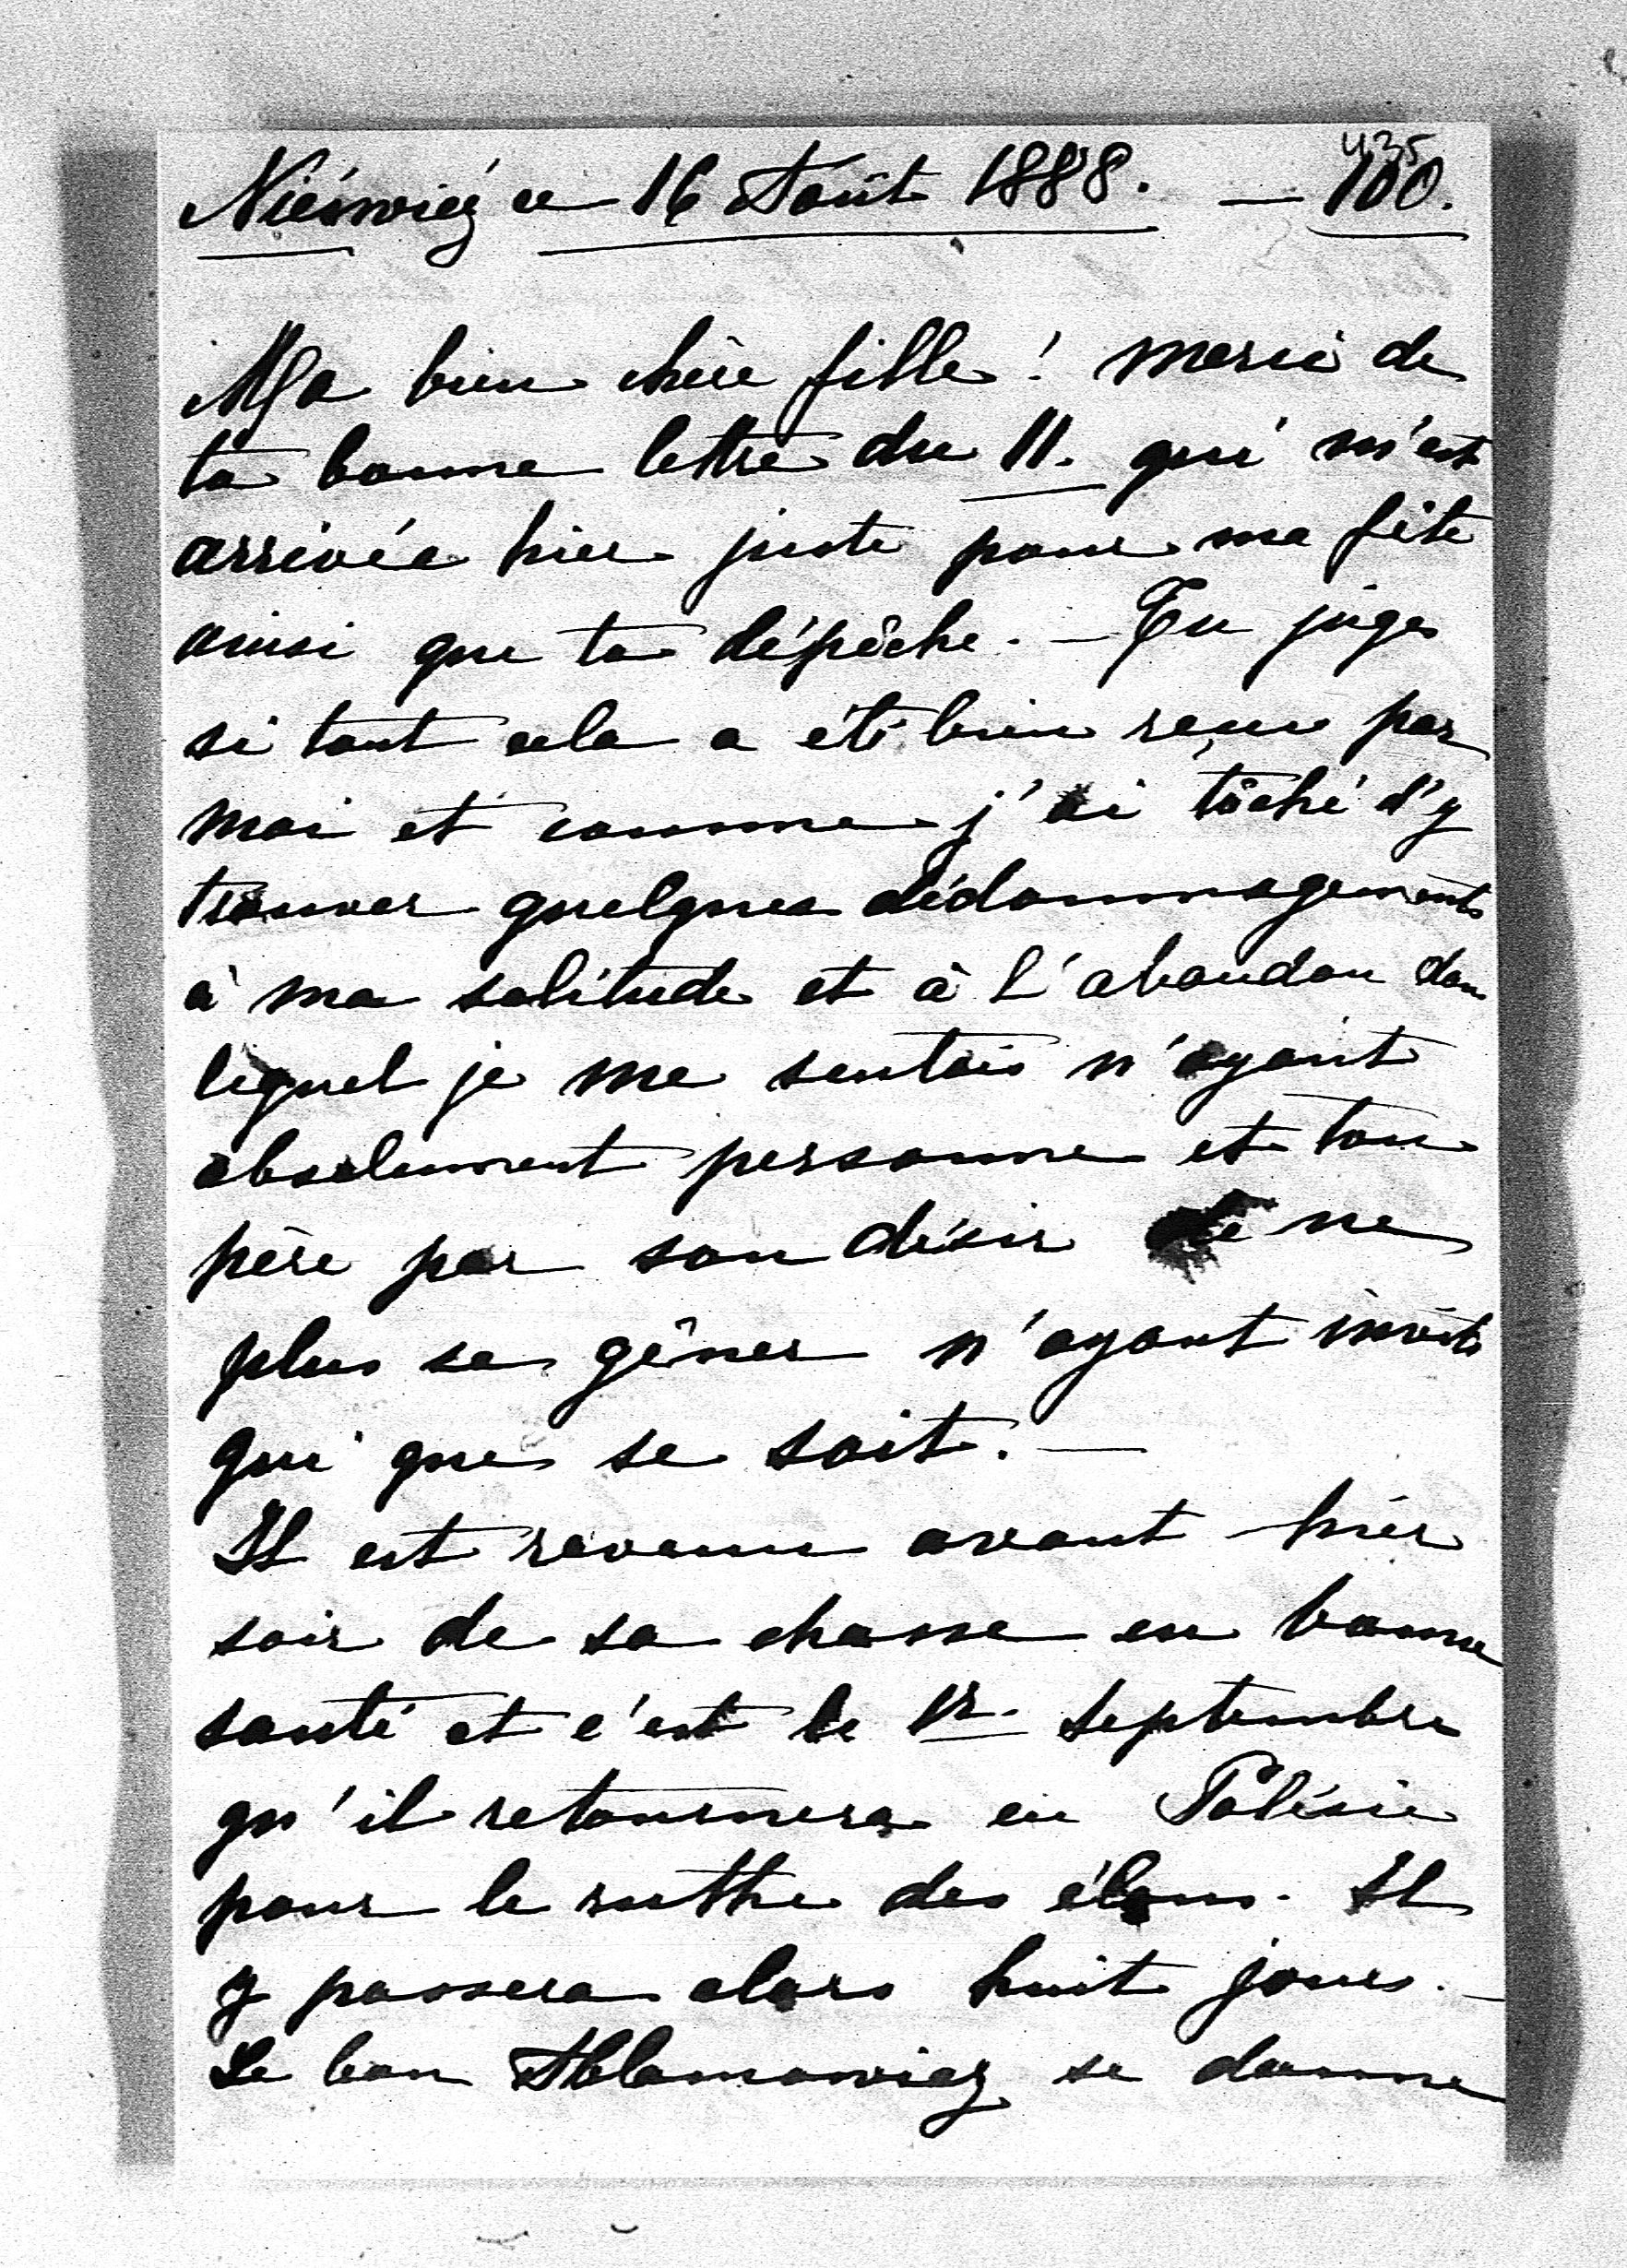 Nieśwież ce 16 Août 1888. — 100.
435
Ma bien chère fille! merci de
ta bonne lettre du 11. qui m'est
arrivée hier juste pour ma fête
ainsi que ta dépêche. — Tu juges
si tout cela a été bien reçu par
moi et comme j'ai tâché d'y
trouver quelques dédommagements
à ma solitude et à l'abandon dans
lequel je me sentais n'ayant
absolument personne et ton
père par son désir de ne
plus se gêner n'ayant invité
qui que se soit. —
Il est revenu avant hier
soir de sa chasse en bonne
santé et c'est le 1r. Septembre
qu'il retournera en Polésie
pour le ruthe des élans. Il
y passera alors huit jours. —
Le bon Ablamowicz se donne